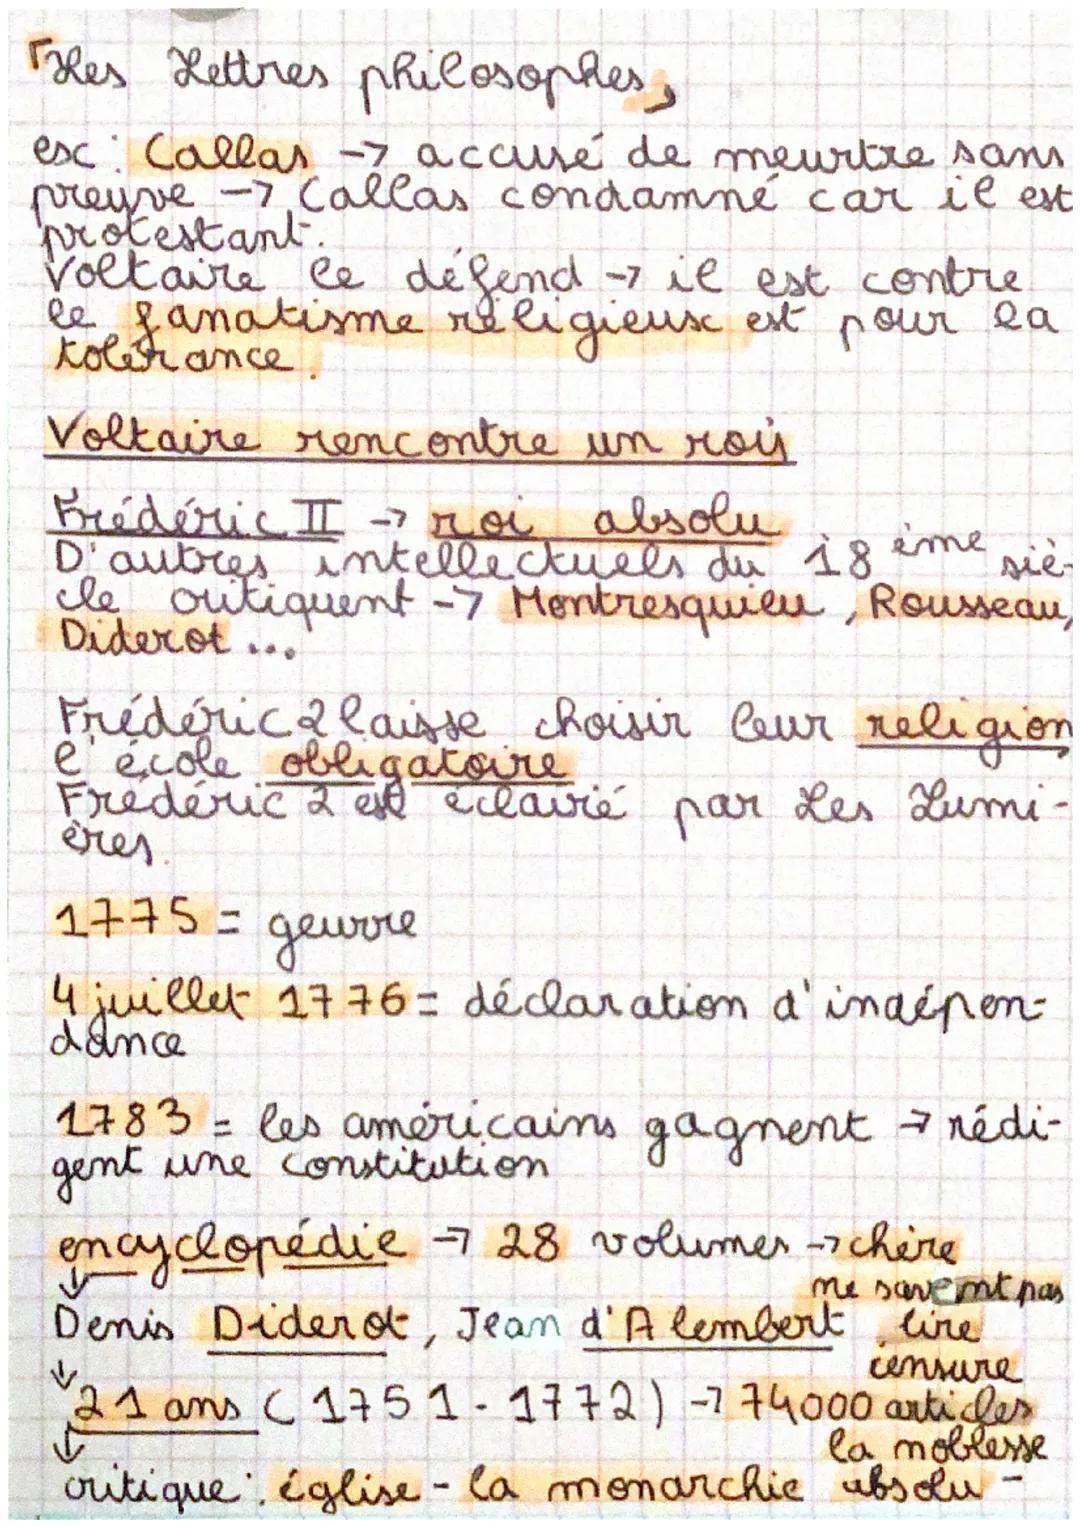 「Les Lettres philosophes,
ex : Callas → accusé de meurtre sans
preuve → Callas condamné car il est
protestant.
Voltaire le défend → il est contre
le fanatisme religieux est pour la
tolérance.
Voltaire rencontre un rois
Frédéric II → roi absolu
D'autres intellectuels du 18 ème siè-
cle critiquent → Montresquieu, Rousseau,
Diderot ...
Frédéric 2 laisse choisir leur religion,
l'école obligatoire
Frédéric 2 est éclairé par Les Lumi-
ères.
1775 = geurre
4 juillet 1776 = déclaration d'indépen-
dance
1783 = les américains gagnent → rédi-
gent une constitution
encyclopédie → 28 volumes → chère
ne savent pas
↓
Denis Diderot, Jean d'Alembert lire
censure
↓
21 ans (1751-1772) → 74000 articles
↓
la noblesse
critique : église - la monarchie absolu -